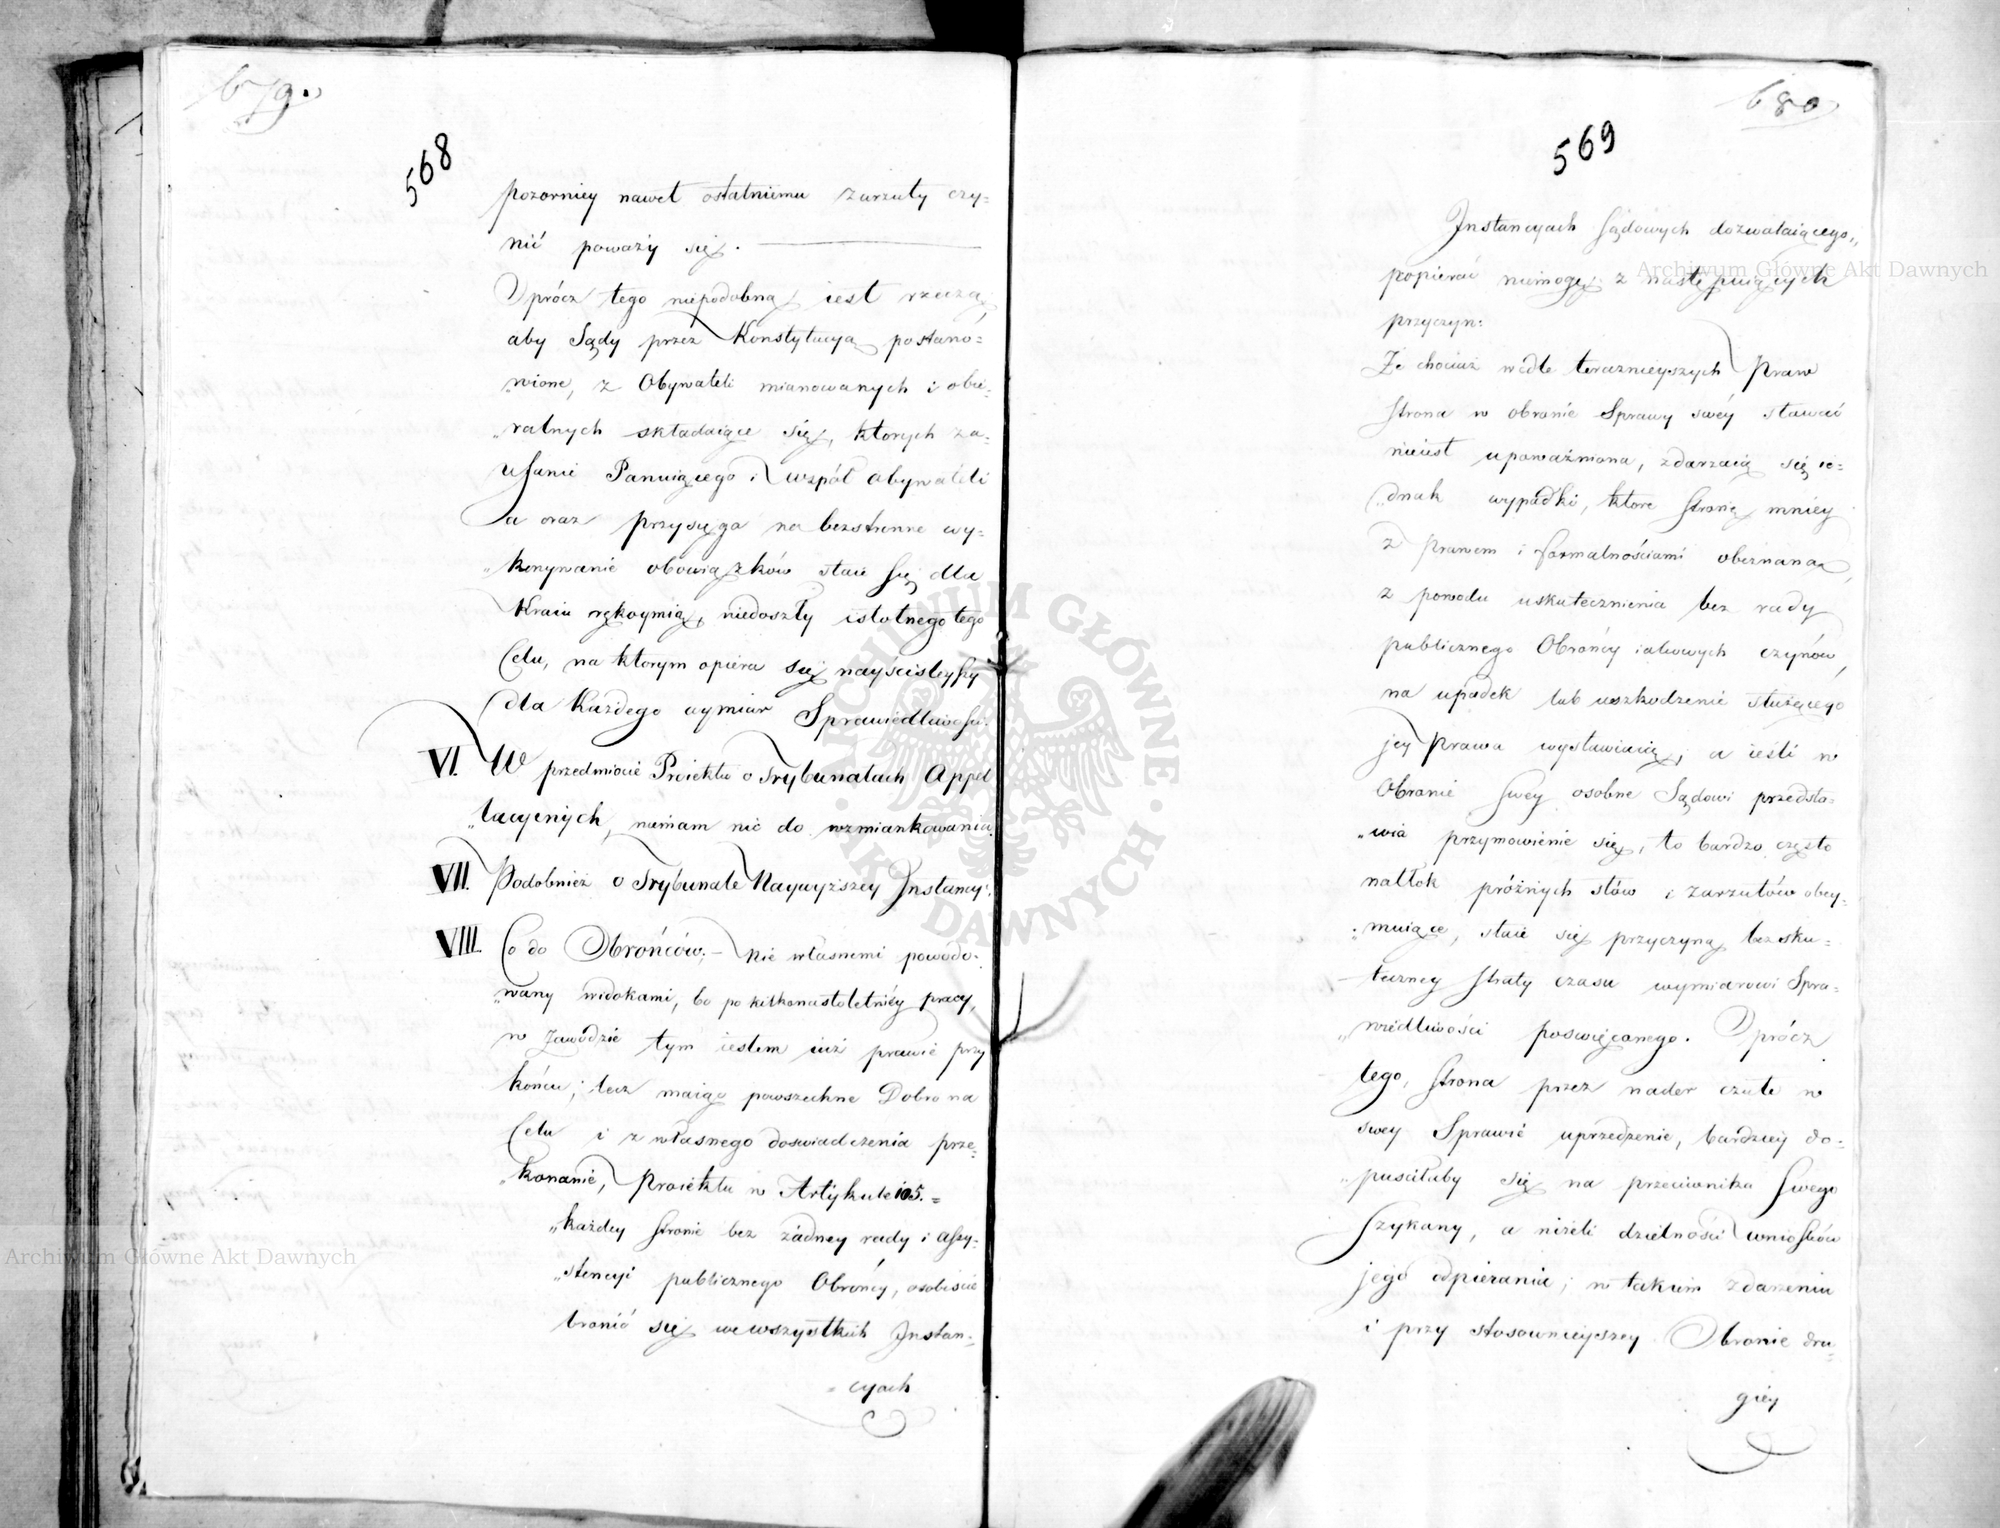 679.
568
pozorniey nawet ostatniemu zarzuty czy-
nić poważy się.
Oprócz tego niepodobną iest rzeczą
aby Sądy przez Konstytucyą postano-
„wione, z Obywateli mianowanych i obie-
„ralnych składaiące się, których za-
ufanie Panuiącego i współ obywateli
a oraz przysięga na bezstronne wy-
„konywanie obowiązków staie się dla
Kraiu rękoymią, niedoszły istotnego tego
Celu, na ktorym opiera się nayscisleyszy
dla każdego wymiar Sprawiedliwości.
VI. W przedmiocie Proiektu o Trybunałach Appel
„lacyinych, niemam nic do wzmiankowania.
VII. Podobnież o Trybunale Naywyższey Instancyi.
VIII. Co do Obrońców; – nie własnemi powodo-
„wany widokami, bo po kilkonastoletniéy pracy,
w zawodzie tym iestem iuż prawie przy
końcu; lecz maiąc powszechne Dobro na
Celu i z własnego doswiadczenia prze-
„konanie, Proiektu w Artykule 105. =
„każdey Stronie bez żadney rady i assy-
„stencyi publicznego Obrońcy, osobiscie
bronić się we wszystkich Instan-
= cyach
680
569
Instancyach Sądowych dozwalaiącego„
popierać niemogę z następuiących
przyczyn:
Że chociaż wedle teraznieyszych Praw
Strona w obronie Sprawy swéy stawać
nieiest upoważniona, zdarzaią się ie-
„dnak wypadki, które Stronę mniéy
z prawem i formalnościami obeznaną,
z powodu uskutecznienia bez rady
publicznego Obrońcy iakowych czynów,
na upadek lub uszkodzenie służącego
jey Prawa wystawiaią, a ieśli w
Obronie swey osobne Sądowi przedsta-
„wia przymowienie się, to bardzo często
natłok próżnych słów i zarzutów obey-
„muiące, staie się przyczyną bezsku-
teczney straty czasu wymiarowi Spra-
„wiedliwości poswięcanego. Oprócz
tego, Strona przez nader czułe w
swey Sprawie uprzedzenie, bardziey do-
„pusciłaby się na przeciwnika swego
Szykany, a niżeli dzielności wniosków
jego odpierania; w takiem zdarzeniu
i przy stosownieyszey Obronie dru-
giey
Archiwum Główne Akt Dawnych
Archiwum Główne Akt Dawnych
ARCHIWUM GŁÓWNE
AKT DAWNYCH